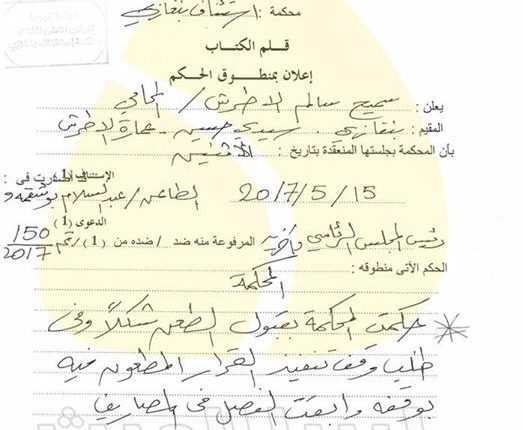 محكمة : استئناف بنغازي
قلم الكتاب
إعلان بمنطوق الحكم
يعلن : سميح سالم الاطرش / المحامي
المقيم : بنغازي . سيدي حسين - عمارة الاطرش
بأن المحكمة بجلستها المنعقدة بتاريخ : الأثنين
2017/5/15 قد أصدرت فى الإستئناف (1) الطاعن / عبدالسلام
المرفوعة منه ضد / ضده من (1) الدعوى (1) رقم 150/2017 رئيس المجلس الرئاسي وآخرين
الحكم الآتى منطوقه :
المحكمة
حكمت المحكمة بقبول الطعن شكلاً وفى
طلب وقف تنفيذ القرار المطعون فيه
بوقفه وابقت الفصل في المصاريف